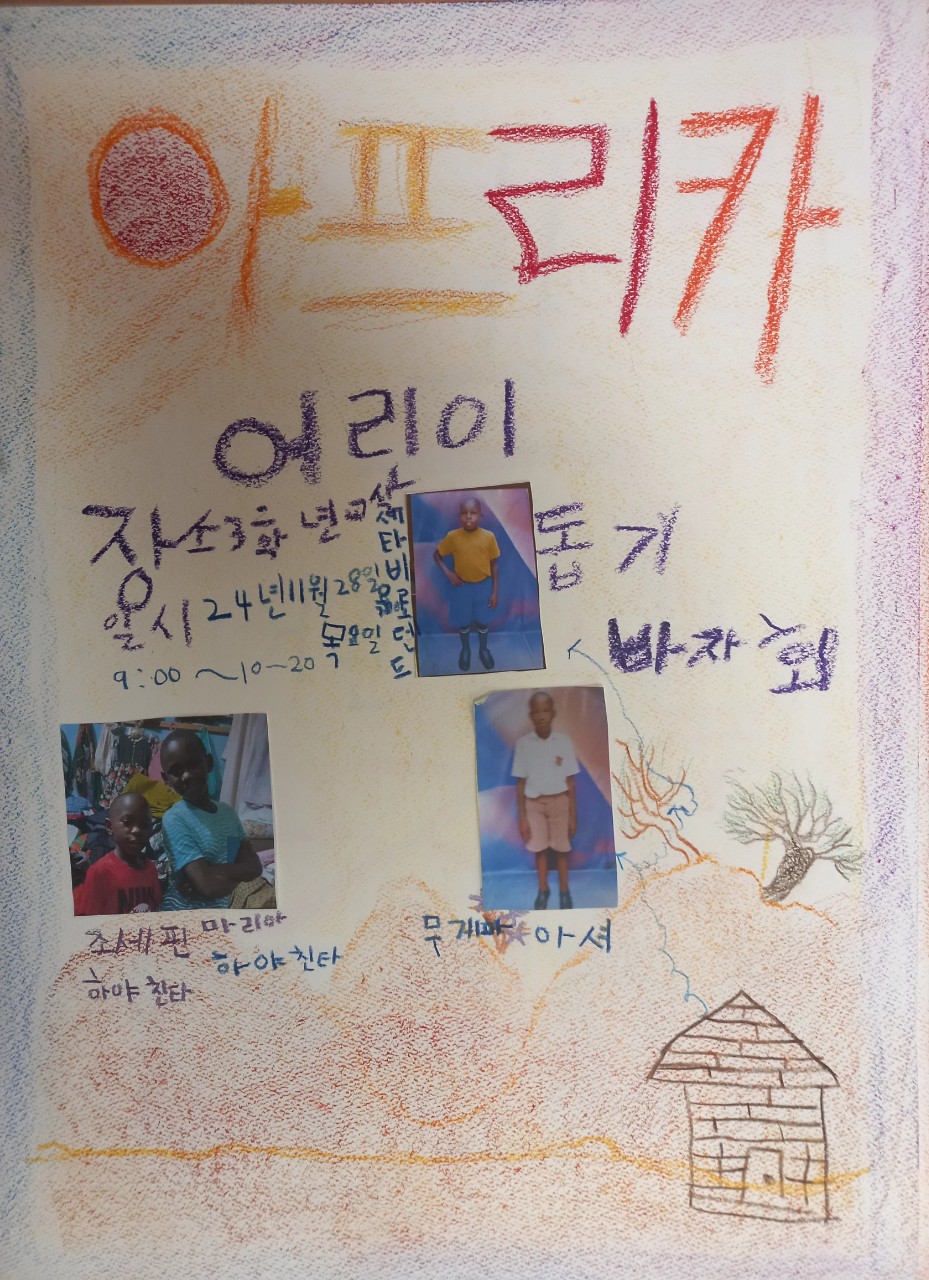 아프리카
어린이
돕기
바자회
장소 3학년
일시 24년 11월 28일
목요일
9:00~10~20
조세핀 마리아
하야친타 하야친타
무게마 아셔